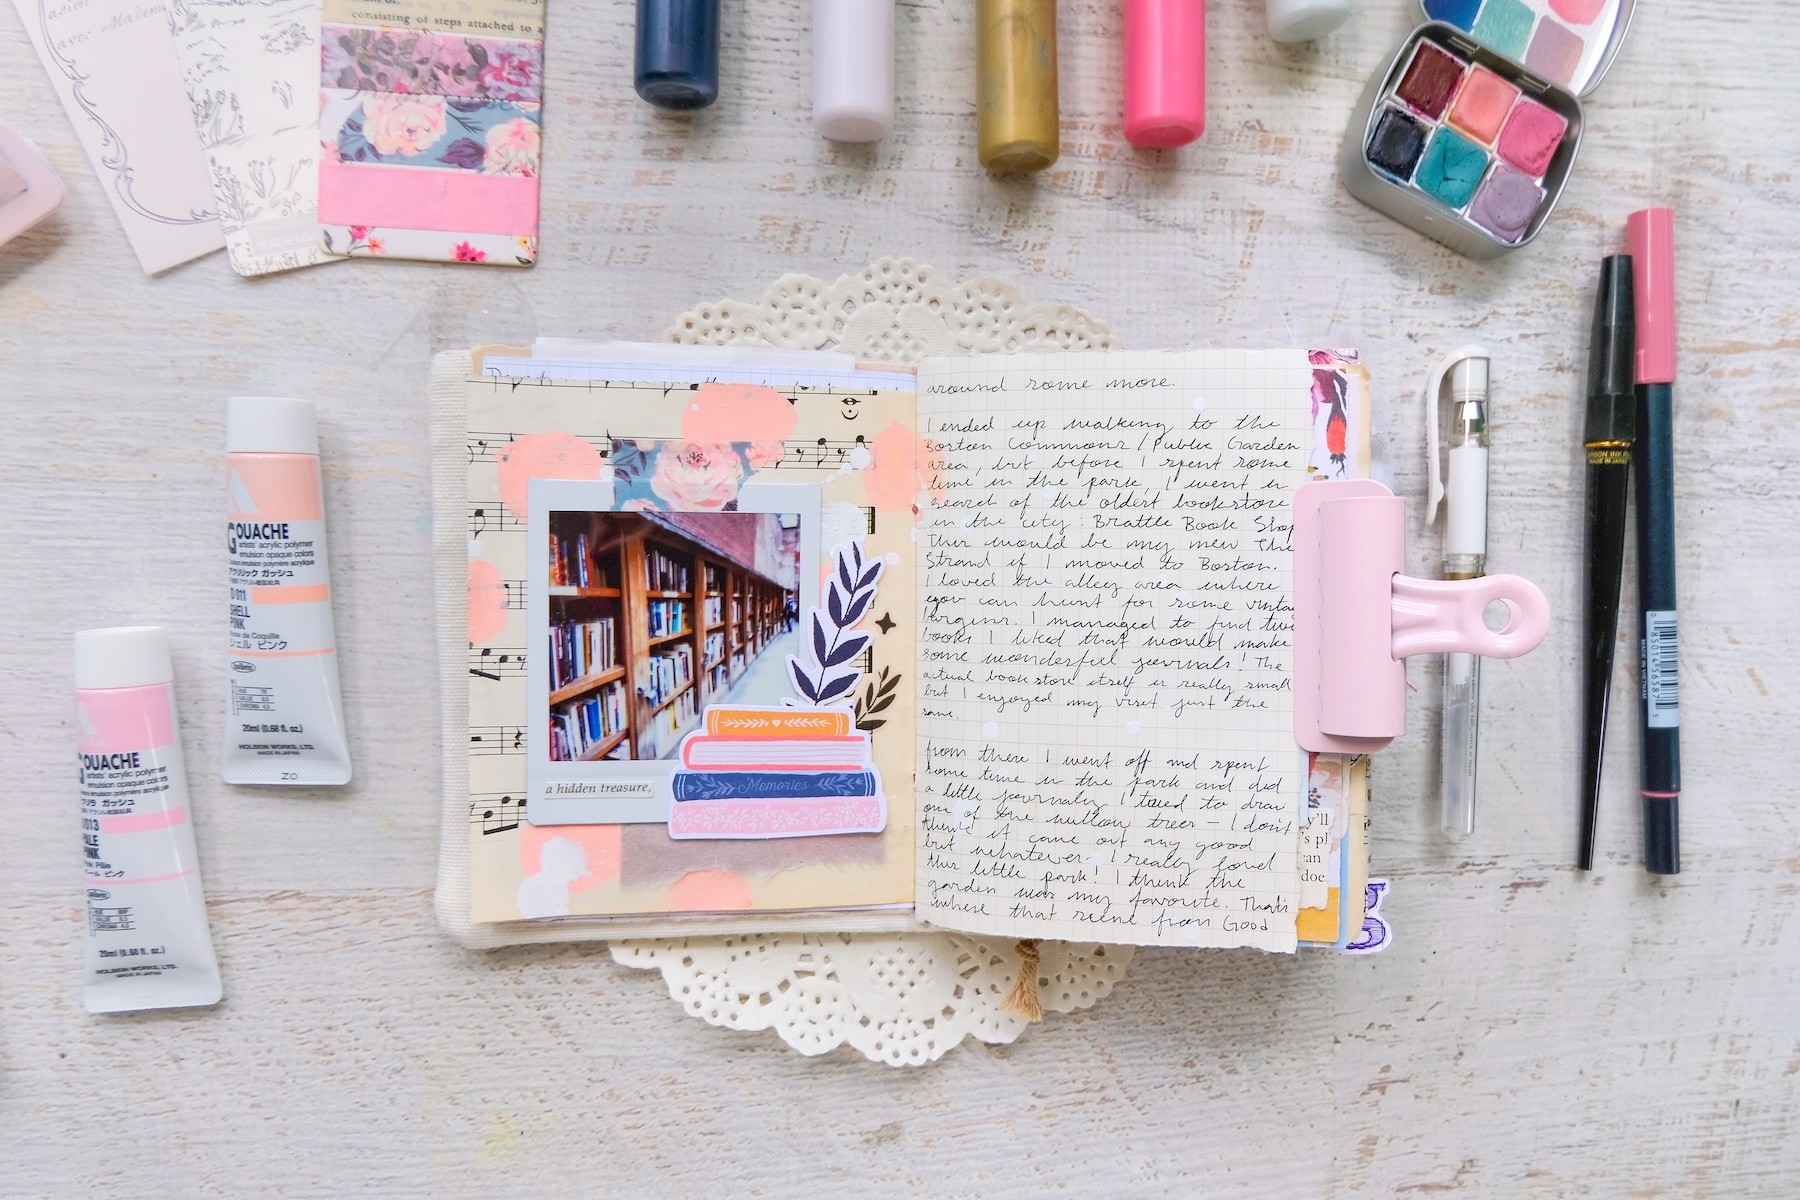 avec Madame
consisting of steps attached to a
MADE US
GOUACHE
artists' acrylic polymer
emulsion opaque colors
couleurs emulsion polymère acrylique
アクリリック ガッシュ
D 011
SHELL
PINK
Rose de Coquille
シェル ピンク
holbein
HUE
VALUE 8.5
CHROMA 4.0
20ml (0.68 fl. oz.)
HOLBEIN WORKS, LTD.
MADE IN JAPAN
ZO
GOUACHE
artists' acrylic polymer
emulsion opaque colors
couleurs emulsion polymère acrylique
ガッシュ
D013
PALE
PINK
Rose Pâle
ペール ピンク
holbein
20ml (0.68 fl. oz.)
HOLBEIN WORKS, LTD.
MADE IN JAPAN
a hidden treasure,
Memories
around some more.
I ended up walking to the
Boston Commons / Public Garden
area, but before I spent some
time in the park, I went in
search of the oldest bookstore
in the city: Brattle Book Shop
This would be my new The
Strand if I moved to Boston.
I loved the alley area where
you can hunt for some vintag
bargins. I managed to find two
books I liked that would make
some wonderful journals! The
actual book store itself is really small
but I enjoyed my visit just the
same.
from there I went off and spent
some time in the park and did
a little journaling. I tried to draw
one of the willow trees – I don't
think it came out any good
but whatever. I really loved
this little park! I think the
garden was my favorite. That's
where that scene from Good
y'll
's pl
can
doe
MADE IN JAPAN
MADE IN VIETNAM